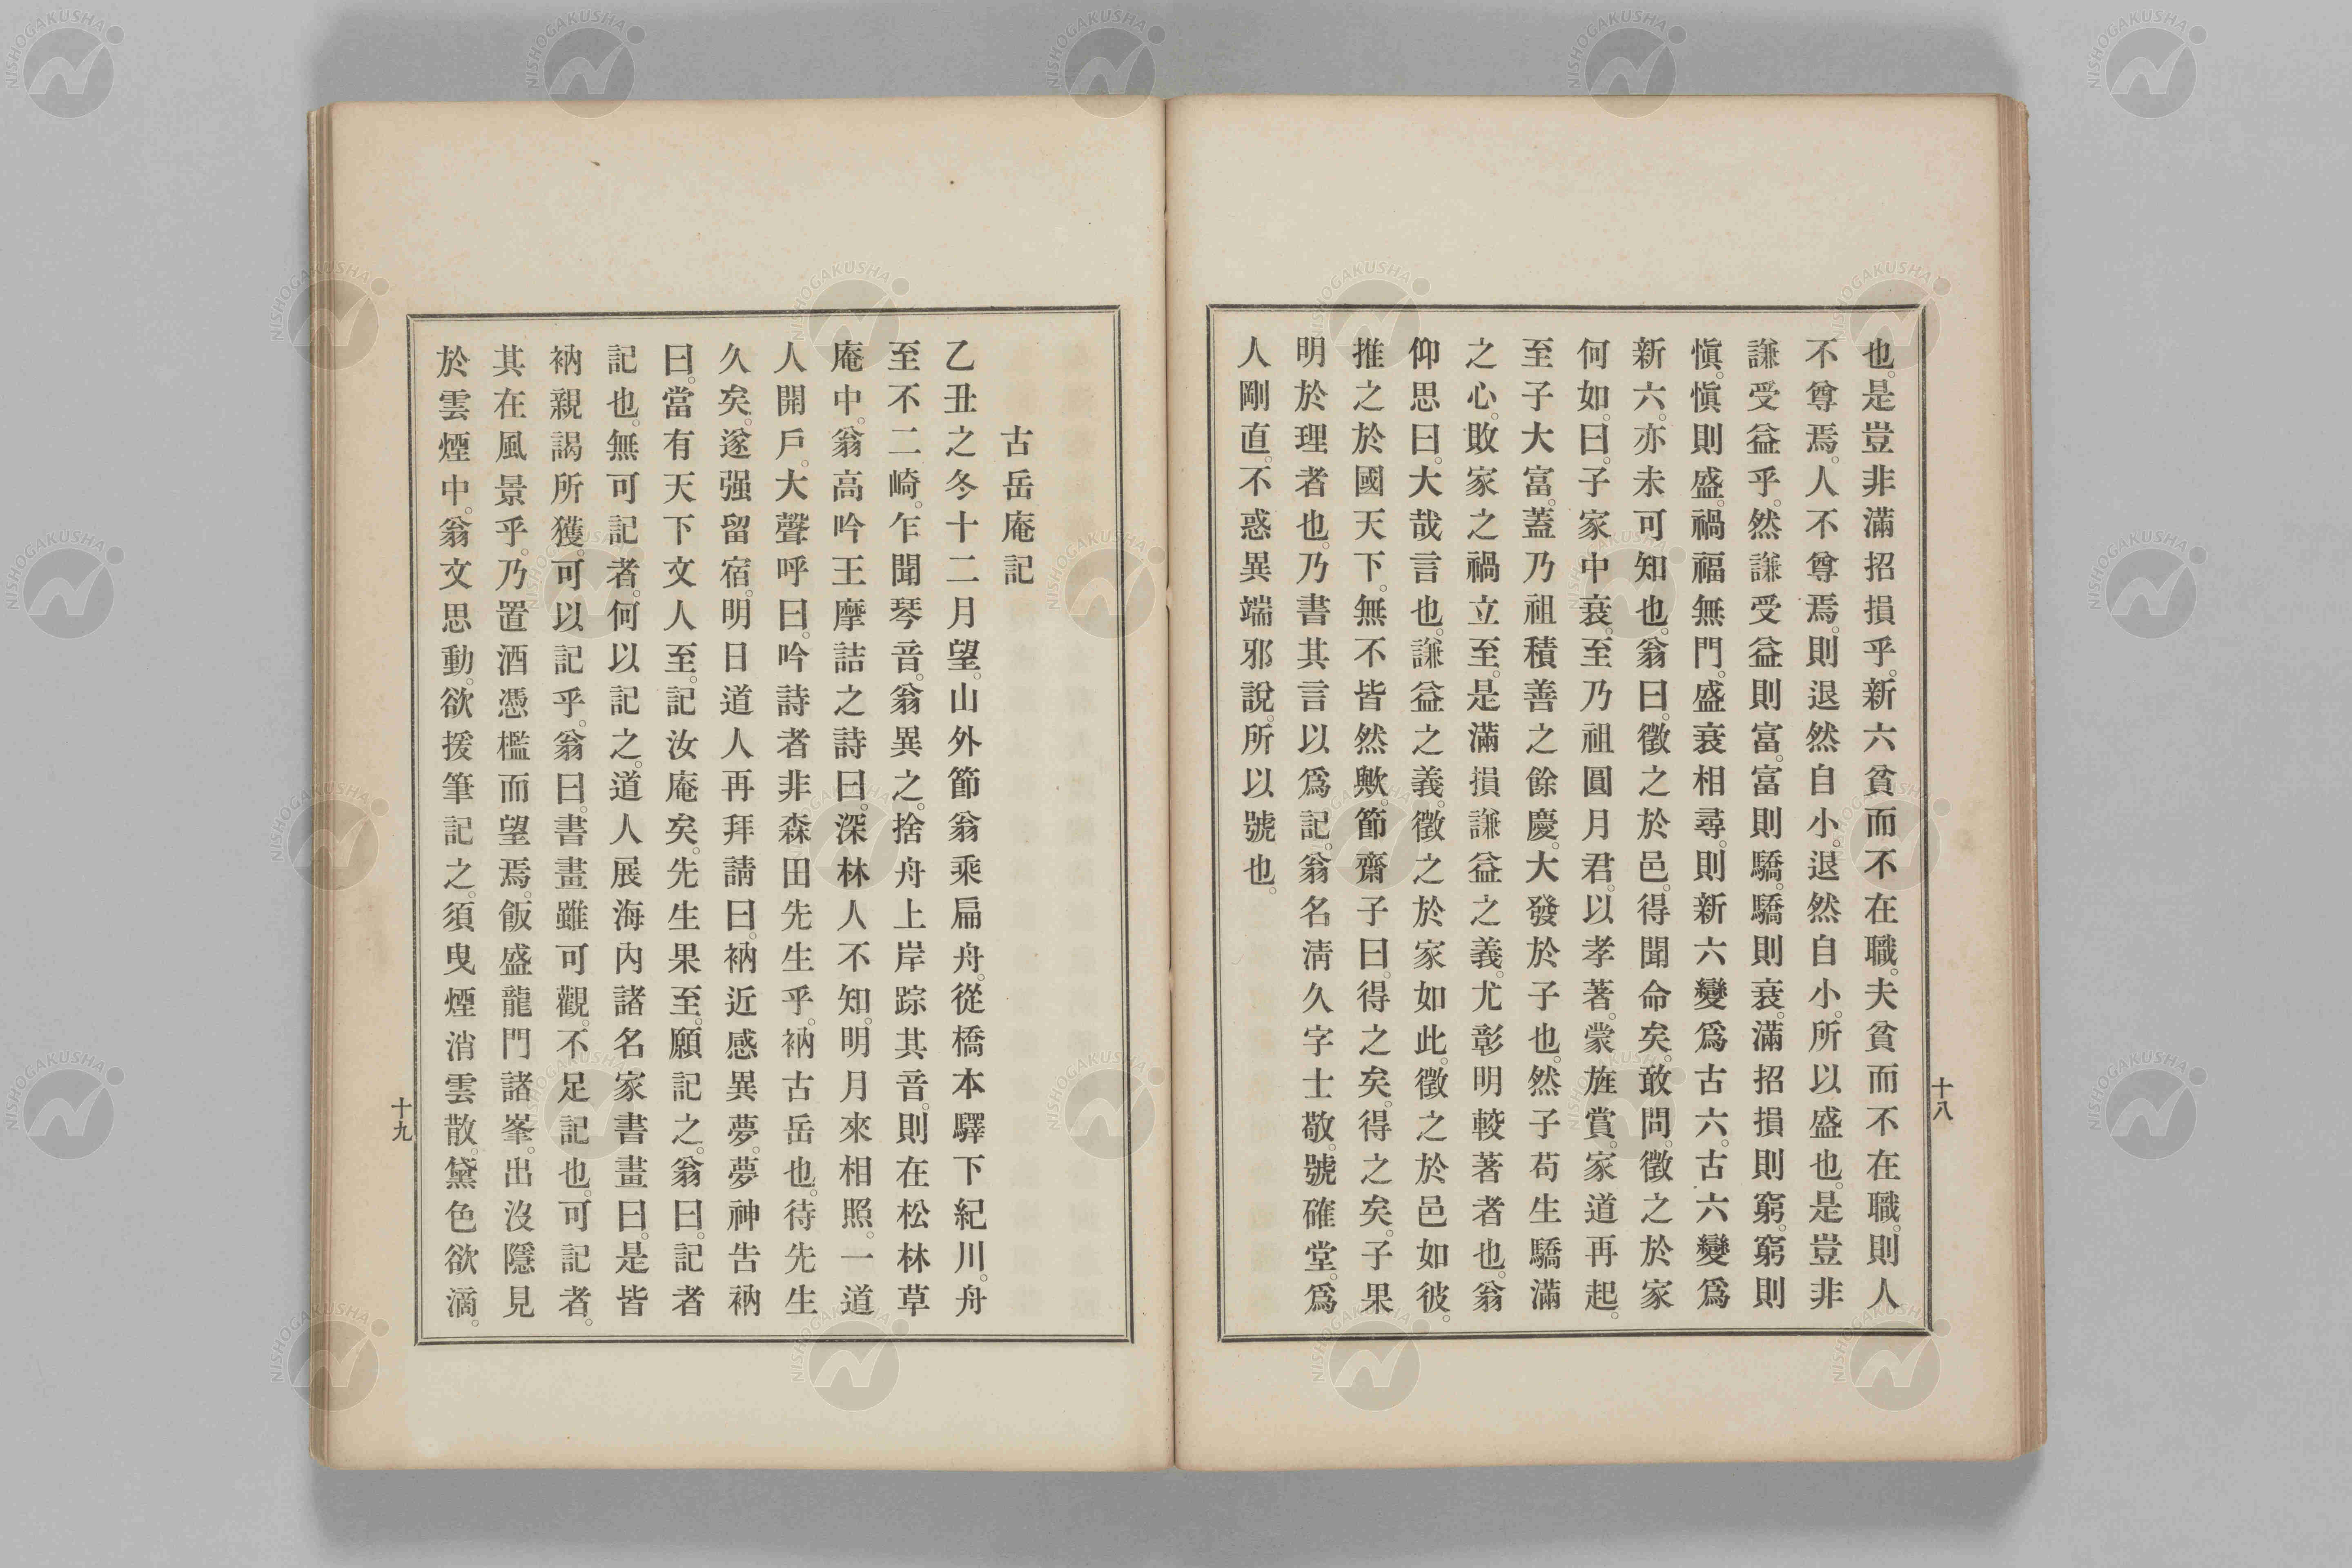 也。是豈非滿招損乎。新六貧而不在職。夫貧而不在職。則人
不尊焉。人不尊焉。則退然自小。退然自小。所以盛也。是豈非
謙受益乎。然謙受益則富。富則驕。驕則衰。滿招損則窮。窮則
愼。愼則盛。禍福無門。盛衰相尋。則新六變爲古六。古六變爲
新六。亦未可知也。翁曰。徵之於邑。得聞命矣。敢問。徵之於家
何如。曰。子家中衰。至乃祖圓月君。以孝著。蒙旌賞。家道再起。
至子大富。蓋乃祖積善之餘慶。大發於子也。然子苟生驕滿
之心。敗家之禍立至。是滿損謙益之義。尤彰明較著者也。翁
仰思曰。大哉言也。謙益之義。徵之於家如此。徵之於邑如彼。
推之於國天下。無不皆然歟。節齋子曰。得之矣。得之矣。子果
明於理者也。乃書其言以爲記。翁名淸久字士敬。號確堂。爲
人剛直。不惑異端邪說。所以號也。
十八
古岳庵記
乙丑之冬十二月望。山外節翁乘扁舟。從橋本驛下紀川。舟
至不二崎。乍聞琴音。翁異之。捨舟上岸踪其音。則在松林草
庵中。翁高吟王摩詰之詩曰。深林人不知。明月來相照。一道
人開戶。大聲呼曰。吟詩者非森田先生乎。衲古岳也。待先生
久矣。遂强留宿。明日道人再拜請曰。衲近感異夢。夢神吿衲
曰。當有天下文人至。記汝庵矣。先生果至。願記之。翁曰。記者
記也。無可記者。何以記之。道人展海內諸名家書畫曰。是皆
衲親謁所獲。可以記乎。翁曰。書畫雖可觀。不足記也。可記者。
其在風景乎。乃置酒憑檻而望焉。飯盛龍門諸峯。出沒隱見
於雲煙中。翁文思動。欲援筆記之。須曳煙消雲散。黛色欲滴。
十九
NISHOGAKUSHA